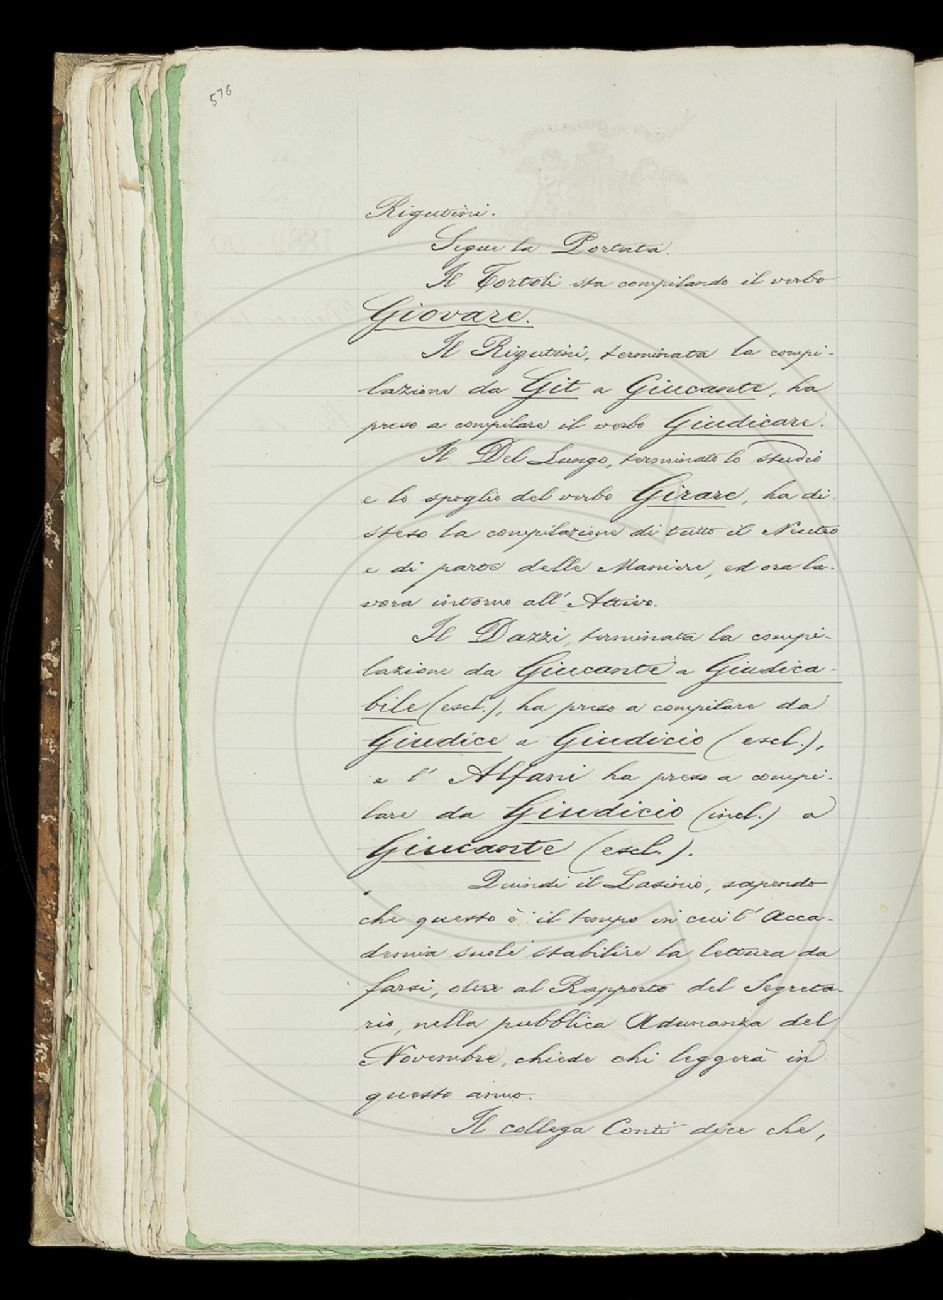 576
Rigutini.
Segue la Portata.
Il Tortoli sta compilando il verbo
Giovare.
Il Rigutini, terminata la compi-
lazione da Git a Giucante, ha
preso a compilare il verbo Giudicare.
Il Del Lungo, terminato lo studio
e lo spoglio del verbo Girare, ha di-
steso la compilazione di tutto il Neutro
e di parte delle Maniere, ed ora la-
vora intorno all' Attivo.
Il Dazzi, terminata la compi-
lazione da Giucante a Giudica-
bile (escl.), ha preso a compilare da
Giudice a Giudicio (escl.),
e l' Alfani ha preso a compi-
lare da Giudicio (incl.) a
Giucante (escl.).
Quindi il Lasinio, sapendo
che questo è il tempo in cui l' Acca-
demia suole stabilire la lettura da
farsi, oltre al Rapporto del Segreta-
rio, nella pubblica Adunanza del
Novembre, chiede chi leggerà in
questo anno.
Il collega Conti dice che,